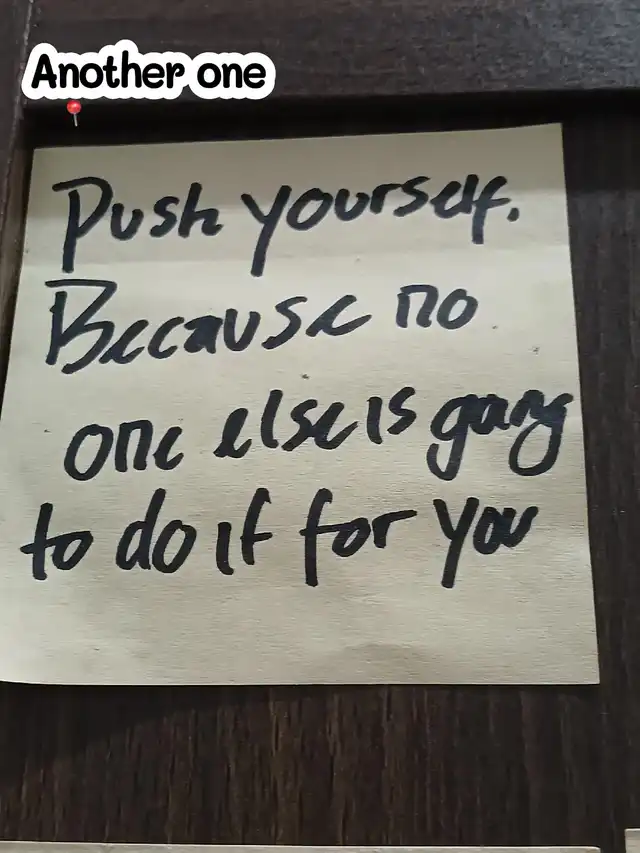 Another one
Push yourself.
Because no
one else is going
to do it for you